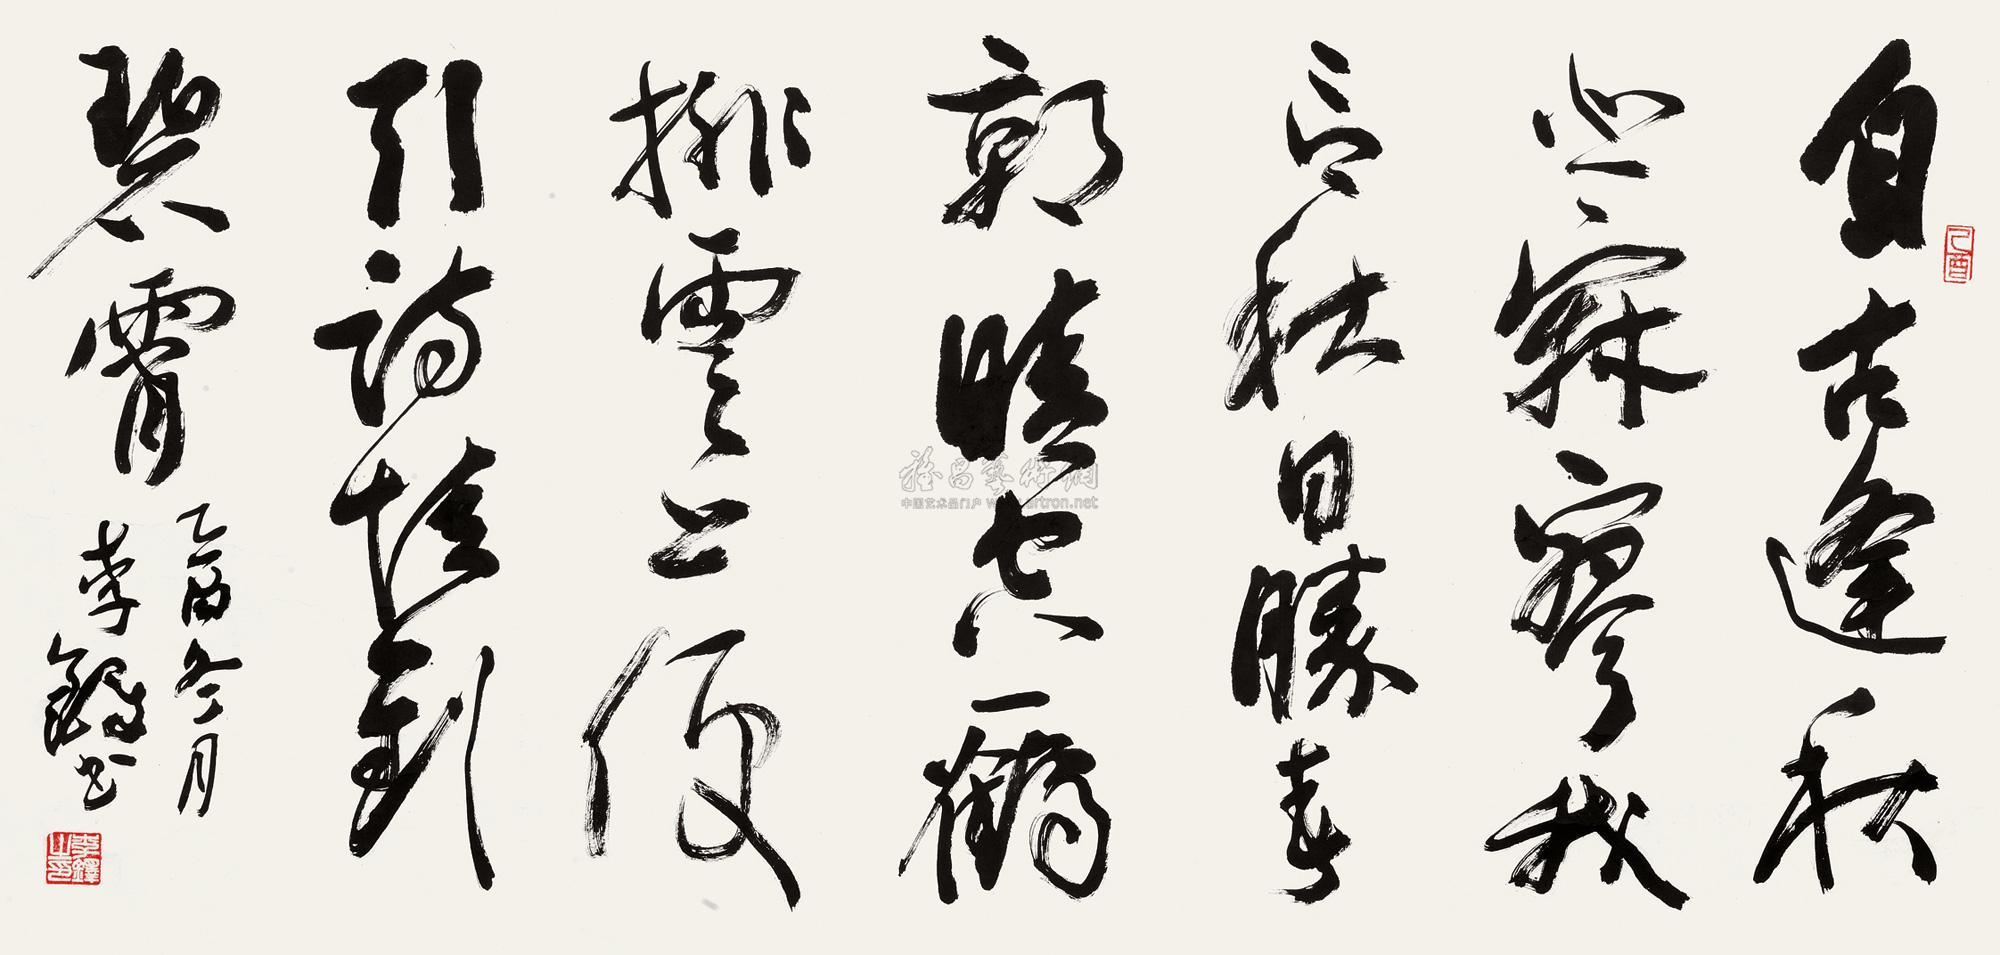 自古逢秋
悲寂寥我
言秋日勝春
朝晴空一鶴
排雲上便
引詩情到
碧霄
乙酉冬月
李鐸書
乙酉
李鐸之印
雅昌藝術網
中国艺术品门户 www.artron.net